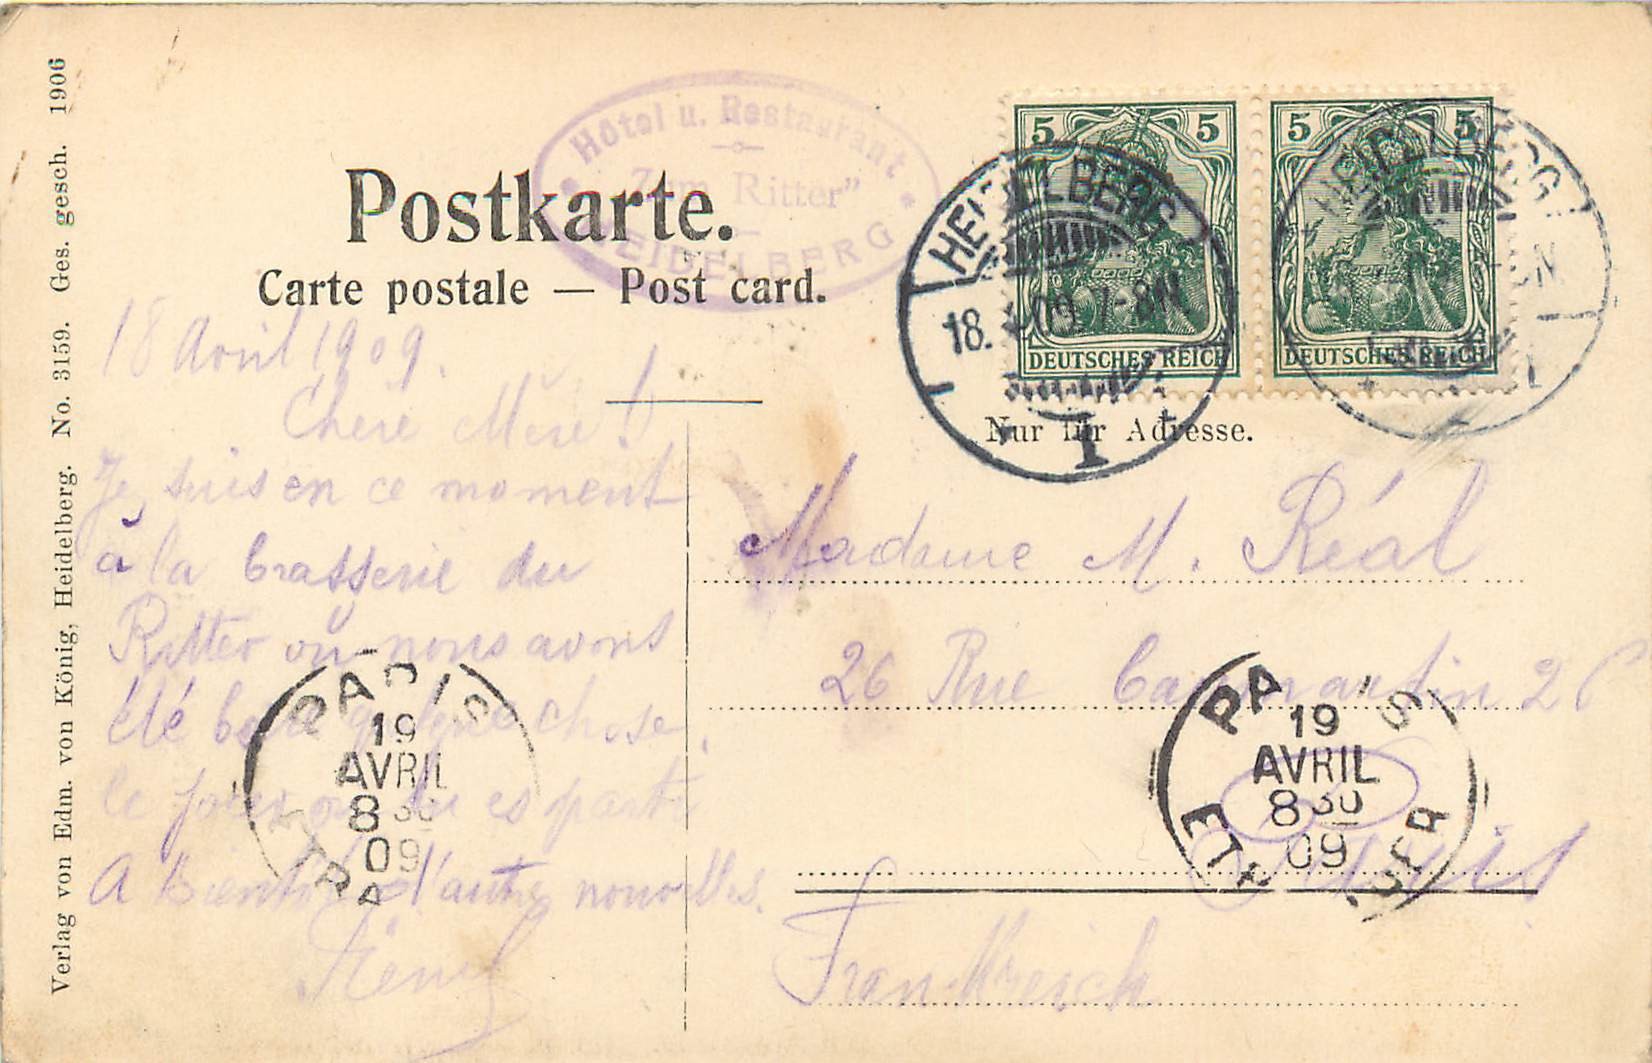 Verlag von Edm. von König, Heidelberg. No. 3159. Ges. gesch. 1906
Hôtel u. Restaurant
"Zum Ritter"
HEIDELBERG
Postkarte.
Carte postale — Post card.
5 5
DEUTSCHES REICH
5 5
DEUTSCHES REICH
HEIDELBERG
18. 4 09. 7-8N
1
HEIDELBERG
Nur für Adresse.
18 Avril 1909.
Chère Mère!
Je suis en ce moment
à la brasserie du
Ritter où nous avons
été boire quelque chose
le jour où tu es parti
A bientôt d'autres nouvelles.
René
Madame M. Réal
26 Rue Caumartin 26
Paris
Frankreich
PARIS
19
AVRIL
8 30
09
ETRA
PARIS
19
AVRIL
8 30
09
ETRANGER